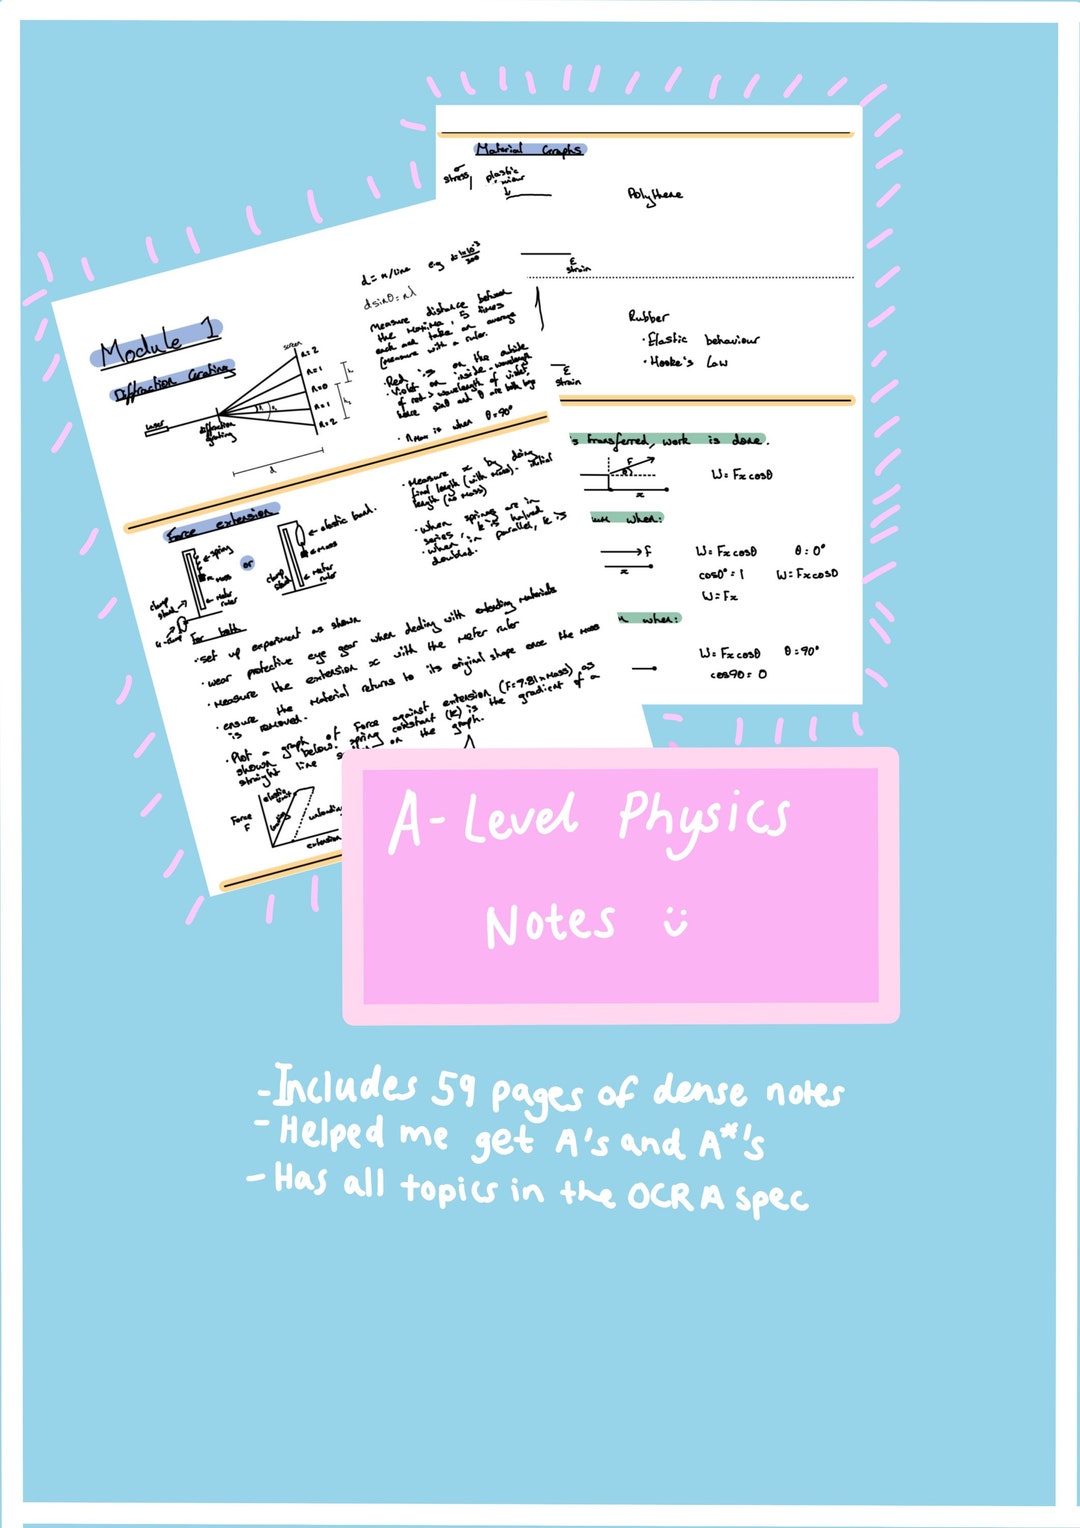 Material Graphs
σ
stress
plastic
Polythene
ε
strain
Rubber
· Elastic behaviour
· Hooke's Law
ε
strain
s transferred, work is done.
F
θ
x
W = Fxcosθ
when:
F
x
W = Fxcosθ θ = 0°
cos0° = 1 W = Fxcos0
W = Fx
when:
W = Fxcosθ θ = 90°
cos90 = 0
Module 1
Diffraction Grating
screen
n = 2
n = 1
n = 0
n = 1
n = 2
laser
diffraction
grating
d
dsinθ = nλ
Measure distance between
the maxima, 5 times
each and take an average
(measure with a ruler.
· Red is on the outside
· Violet on inside - wavelength
of red > wavelength of violet,
hence sinθ and θ are both big
· nmax is when θ = 90°
Force extension
spring
mass
meter
ruler
clamp
stand
G-clamp
or
elastic band.
mass
meter
ruler
clamp
stand
· Measure x by doing
final length (with mass) - initial
length (no mass)
· when springs are in
series, k is halved
· when in parallel, k is
doubled.
For both
· set up experiment as shown
· wear protective eye gear when dealing with extending materials
· measure the extension x with the meter ruler
· ensure the material returns to its original shape once the mass
is removed.
· Plot a graph of Force against extension (F = 9.81 x mass) as
shown below. spring constant (k) is the gradient of a
straight line on the graph.
Force
F
elastic
limit
loading
unloading
extension
A-Level Physics
Notes :)
- Includes 59 pages of dense notes
- Helped me get A's and A*'s
- Has all topics in the OCR A spec